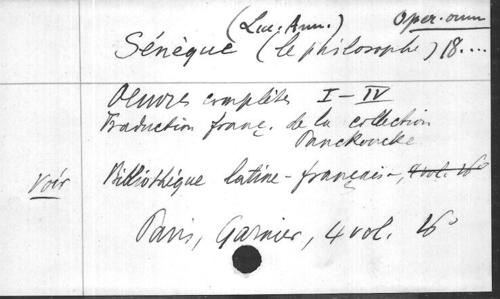 (Luc. Ann.) Oper. omn
Sénèque (le philosophe) 18....
Oeuvres complètes I-IV
Traduction franç. de la collection
Panckoucke
voir Bibliothèque latine-française, 4 vol. 16°
Paris, Garnier, 4 vol. 16°